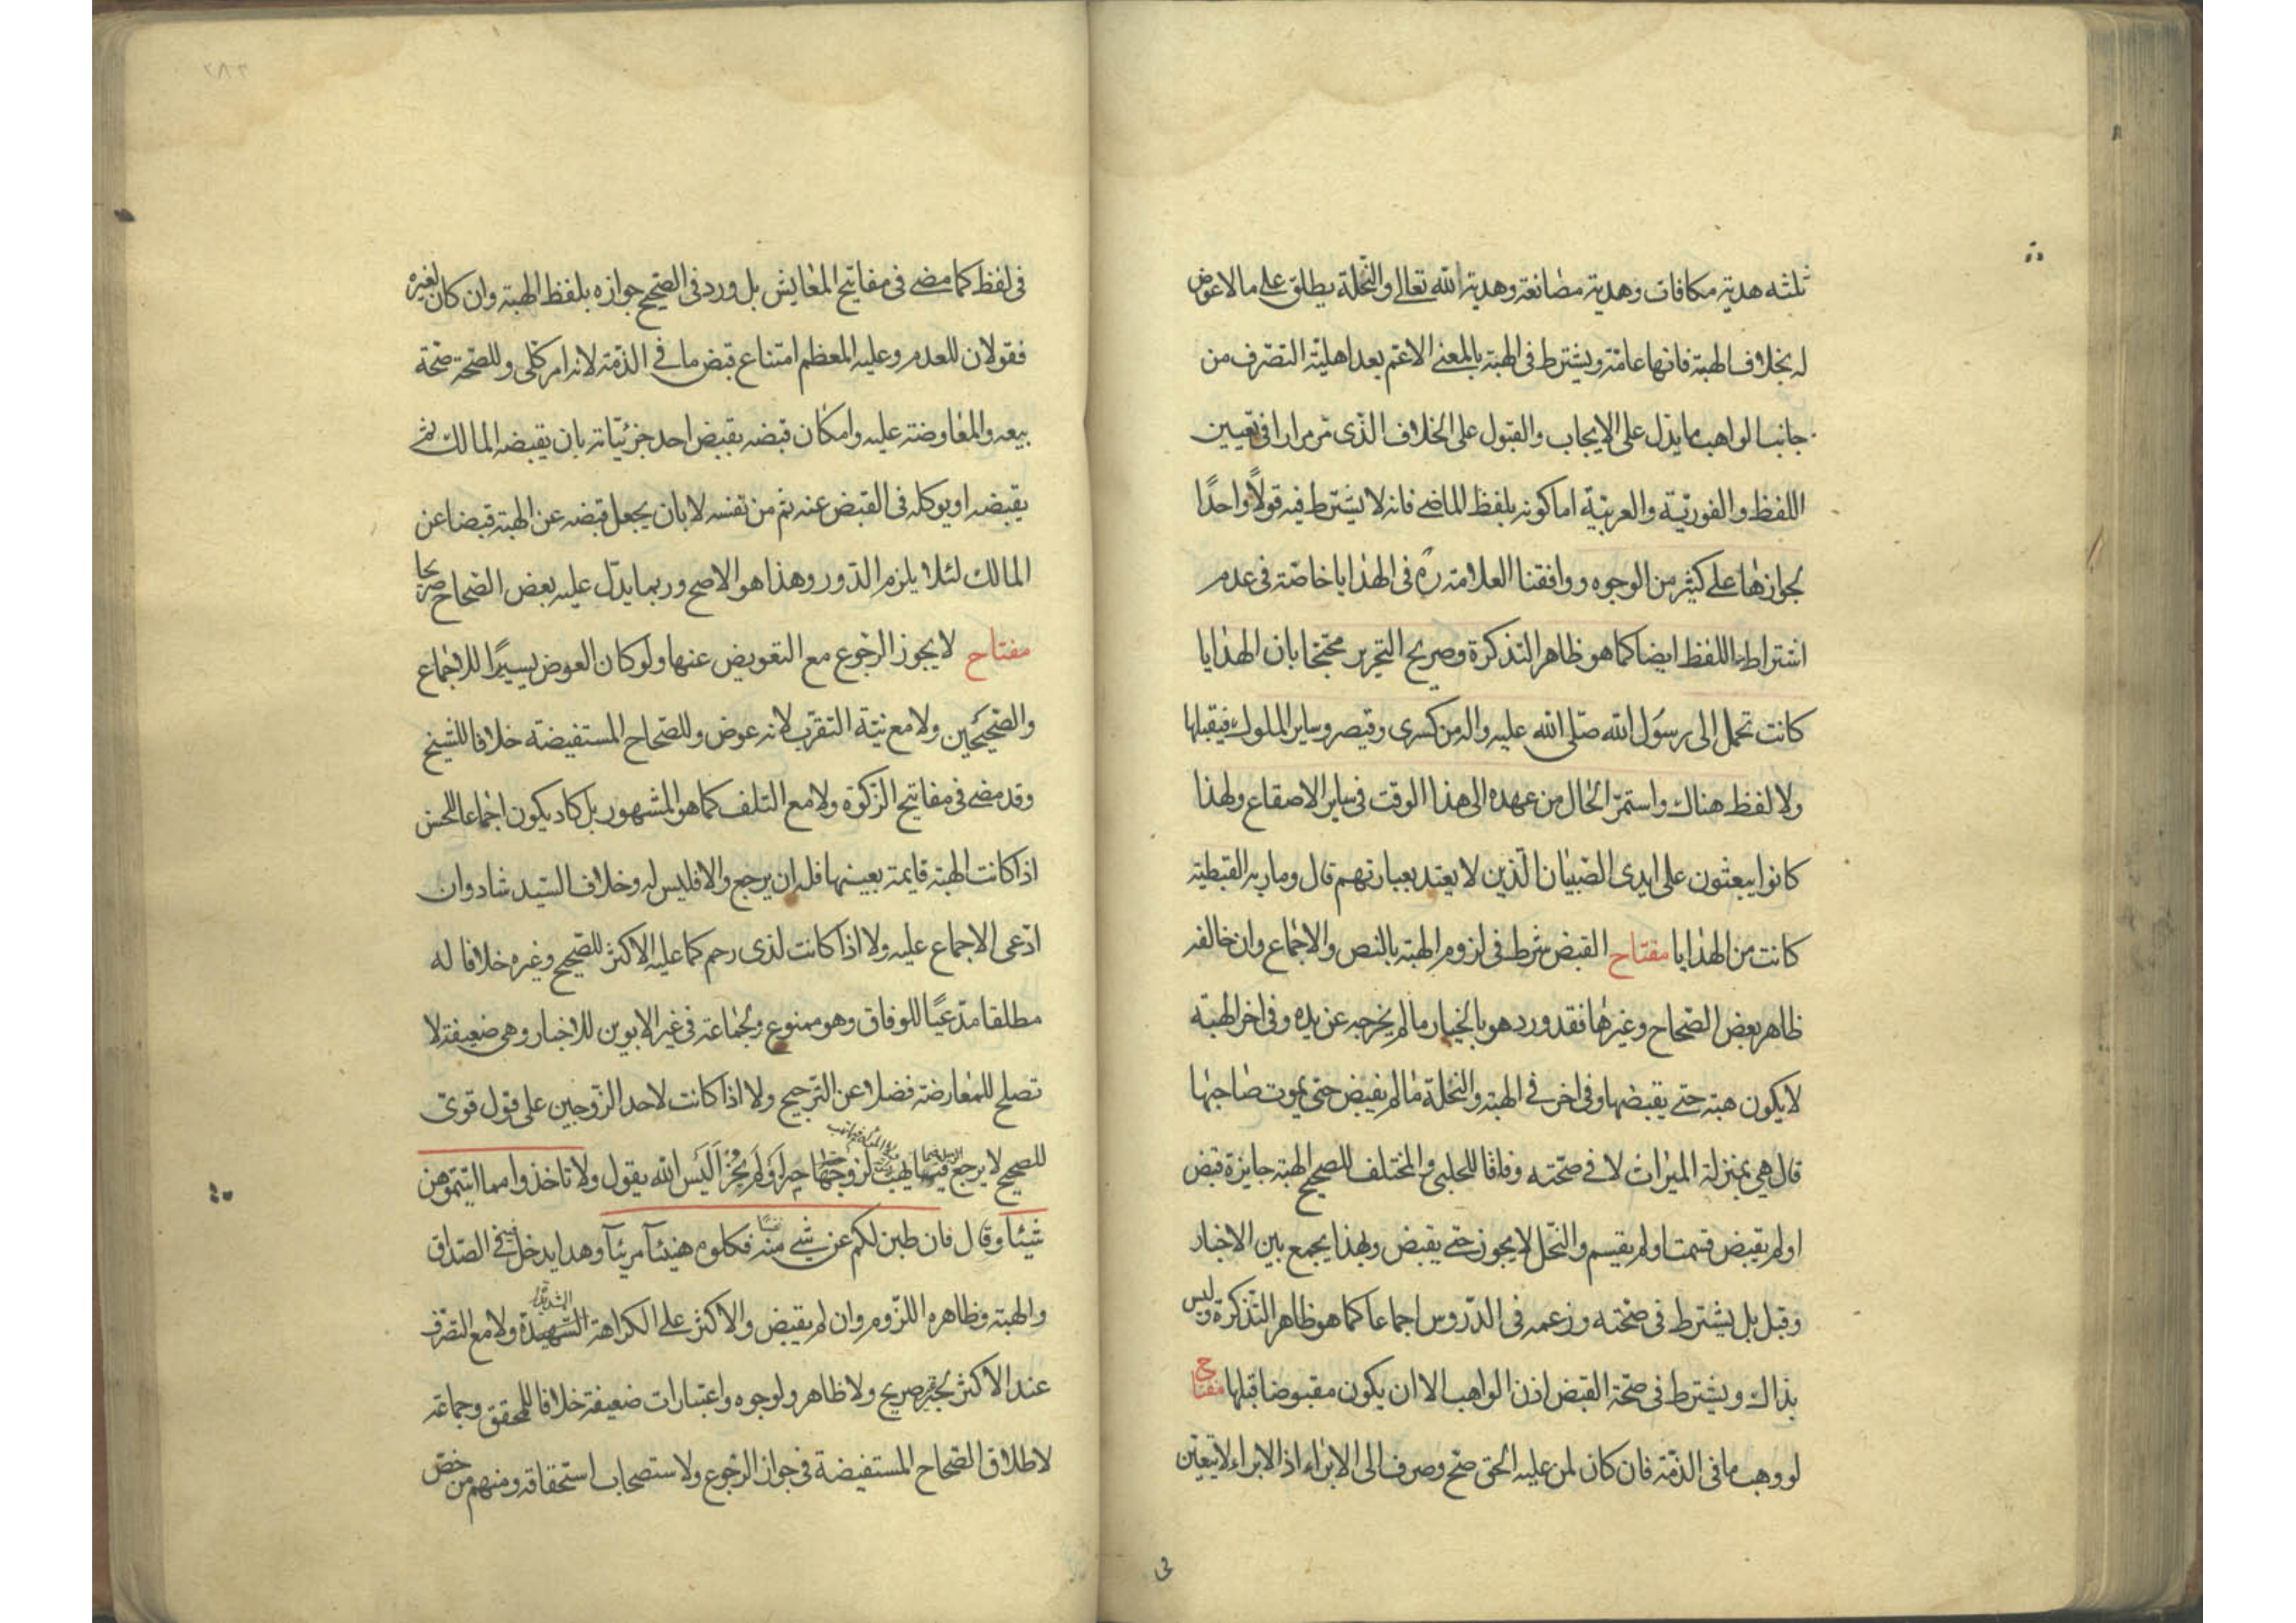 ثلثه هدية مكافات وهدية مصانعة وهدية الله تعالى والنحلة يطلق على ما لا عوض
له بخلاف الهبة فانها عامة ويشترط في الهبة بالمعنى الاعم بعد اهلية التصرف من
جانب الواهب ما يدل على الايجاب والقبول على الخلاف الذى مر مرارا في تعيين
اللفظ والفورية والعربية اما كونه بلفظ الماضي فانه لا يشترط فيه قولاً واحدًا
لجوازها على كثير من الوجوه ووافقنا العلامة ره في الهدايا خاصة في عدم
اشتراط اللفظ ايضا كما هو ظاهر التذكرة وصريح التحرير محتجا بان الهدايا
كانت تحمل الى رسول الله صلى الله عليه واله من كسرى وقيصر وساير الملوك فيقبلها
ولا لفظ هناك واستمر الحال من عهده الى هذا الوقت في ساير الاصقاع ولهذا
كانوا يبعثون على ايدى الصبيان الذين لا يعتد بعباراتهم قال ومارية القبطية
كانت من الهدايا مفتاح القبض شرط في لزوم الهبة بالنص والاجماع وان خالفه
ظاهر بعض الصحاح وغيرها فقد ورد هو بالخيار ما لم يخرجه عن يده وفى اخر الهبة
لا يكون هبة حتى يقبضها وفى اخر في الهبة والنحلة ما لم يقبض حتى يموت صاحبها
قال هي بمنزلة الميراث لا في صحته وفاقا للحلبي والمختلف للصحيح الهبة جايزة قبض
او لم يقبض قسمت او لم يقسم والنحل لا يجوز حتى يقبض وبهذا يجمع بين الاخبار
وقيل بل يشترط في صحته وزعمه في الدروس اجماعا كما هو ظاهر التذكرة وليس
بذاك ويشترط في صحة القبض اذن الواهب الا ان يكون مقبوضا قبلها مفتاح
لو وهب ما في الذمة فان كان لمن عليه الحق صح وصرف الى الابراء اذ الابراء لا يتعين
فى
٢٨٣
في لفظ كما مضى في مفاتيح المعايش بل ورد في الصحيح جوازه بلفظ الهبة وان كان لغيره
فقولان للعدم وعليه المعظم امتناع قبض ما في الذمة لانه امر كلي وللصحة صحة
بيعه والمعاوضة عليه وامكان قبضه بقبض احد جزئياته بان يقبضه المالك ثم
يقبضه او يوكله في القبض عنه ثم من نفسه لا بان يجعل قبضه عن الهبة قبضا عن
المالك لئلا يلزم الدور وهذا هو الاصح وربما يدل عليه بعض الصحاح صريحا
مفتاح لا يجوز الرجوع مع التعويض عنها ولو كان العوض يسيرًا للاجماع
والصحيحين ولا مع نية التقرب لانه عوض وللصحاح المستفيضة خلافا للشيخ
وقد مضى في مفاتيح الزكوة ولا مع التلف كما هو المشهور بل كاد يكون اجماعا للحسن
اذا كانت الهبة قايمة بعينها فله ان يرجع والا فليس له وخلاف السيد شاد وان
ادعى الاجماع عليه ولا اذا كانت لذى رحم كما عليه الاكثر للصحيح وغيره خلافا له
مطلقا مدعيًا للوفاق وهو ممنوع ولجماعة في غير الابوين للاخبار وهى ضعيفة لا
تصلح للمعارضة فضلا عن الترجيح ولا اذا كانت لاحد الزوجين على قول قوى
للصحيح لا يرجع فيما يهب لزوجها حيز او لم يُحَز اليس الله يقول ولا تاخذوا مما اتيتموهن
شيئا وقال فان طبن لكم عن شي منه نفسًا فكلوه هنيئا مريئا وهذا يدخل في الصداق
والهبة وظاهره اللزوم وان لم يقبض والاكثر على الكراهة الشديدة ولا مع التصرف
عند الاكثر لخبر غير صريح ولا ظاهر ولوجوه واعتبارات ضعيفة خلافا للمحقق وجماعة
لاطلاق الصحاح المستفيضة في جواز الرجوع ولاستصحاب استحقاقه ومنهم من خص